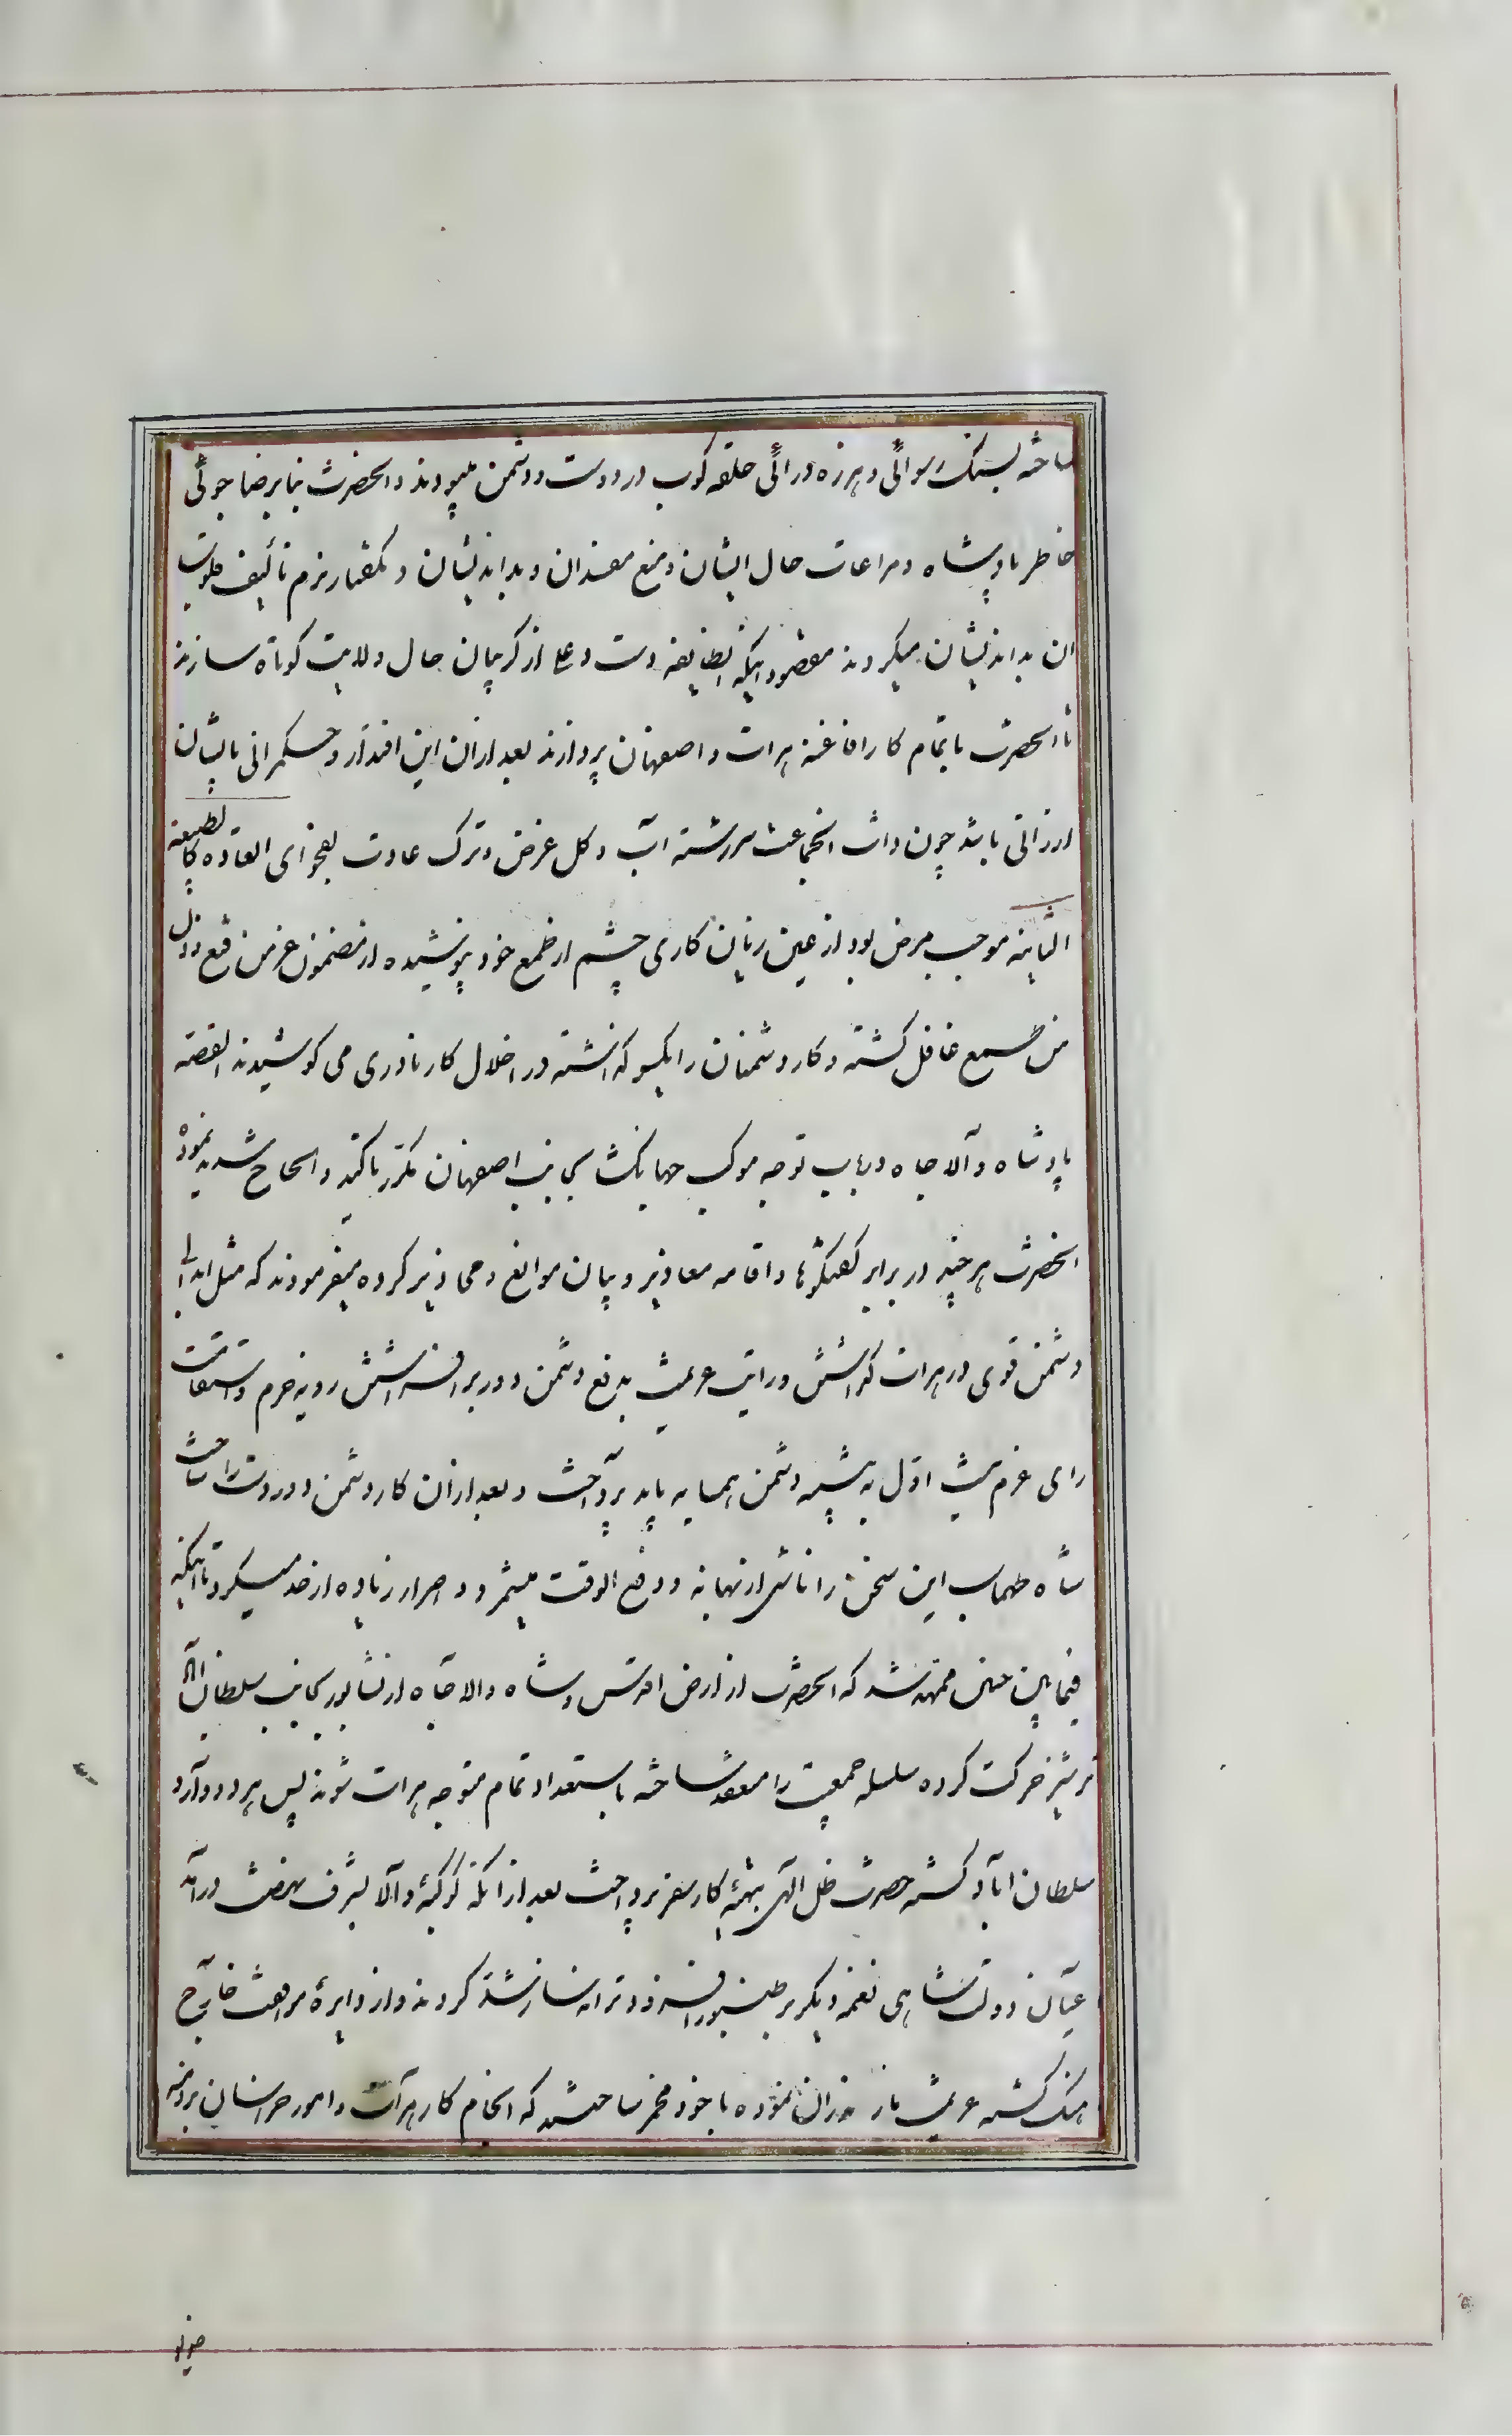 ساخته بسنک رسوائی و هرزه درائی حلقه کوب در دوست و دشمن میبودند و انحضرت بنابر رضا جوئی
خاطر پادشاه و مراعات حال ایشان و منع مفسدان و بداندیشان و بکفتار نرم تألیف قلوب
ان بداندیشان میکردند مقصود اینکه انطایفه دست دعا از کریبان حال ولایت کوتاه سازند
تا انحضرت باتمام کار افاغنه هرات و اصفهان پردازند بعد ازان این اقتدار و حکمرانی بایشان
ارزانی باشد چون دات انجماعت سررشته آب و کل غرض و ترک عادت بفحوای العاده کالطبیعة
الثانیه موجب مرض بود از عین زیان کاری چشم از طمع خود پوشیده از مضمون عز من قنع و ذل
من طمع غافل کشته و کار دشمنان را یکسو کذاشته در اخلال کار نادری می کوشیدند القصه
پادشاه والا جاه در باب توجه موکب جهانکشا بجانب اصفهان مکرر تاکید و الحاح شدید نموده
انحضرت هر چند در برابر کفتکوها و اقامه معاذیر و بیان موانع و محاذیر کرده میفرمودند که مثل ابدالی
دشمن قوی در هرات کذاشتن و رایت عزیمت بدفع دشمن دور بر افراشتن رویه حزم و استقامت
رای عزم نیست اول به دشمن همسایه باید پرداخت و بعد ازان کار دشمن دور دست را ساخت
شاه طهماسب این سخن را ناشی از بهانه و دفع الوقت میشمرد و اصرار زیاده از حد میکرد تا اینکه
فیما بین چنین ممهد شد که انحضرت از ارض اقدس و شاه والا جاه از نشابور بجانب سلطان اباد
ترشیز حرکت کرده سلسله جمعیت را منعقد ساخته باستعداد تمام متوجه هرات شوند پس هر دو وارد
سلطان اباد کشته حضرت ظل الهی بتهیه کار سفر پرداخت بعد از انکه کوکبه والا بشرف نهضت درآمد
اعیان دولت شاهی نغمه دیکر بر طنبور افزوده ترانه ساز شدند کردند و از دایره مرافقت خارج
اهنک کشته عزیمت مازندران نموده با خود مخمر ساختند که انجام کار هرات و امور خراسان بر ذمه